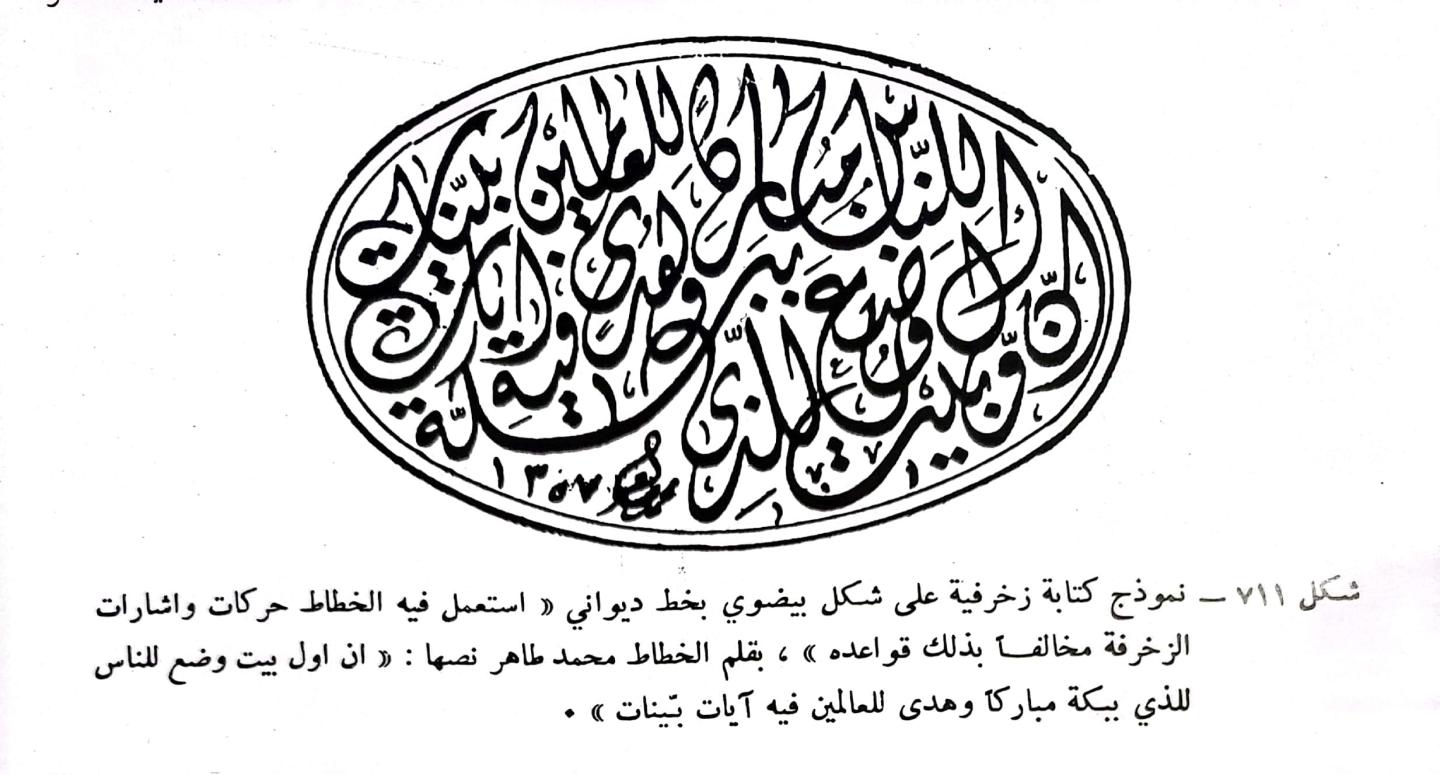 إنّ أوّل بيت وضع للنّاس للّذي ببكّة مباركا وهدى للعالمين فيه ايات بيّنات
١٣٥٧
شكل ٧١١ — نموذج كتابة زخرفية على شكل بيضوي بخط ديواني « استعمل فيه الخطاط حركات واشارات
الزخرفة مخالفـاً بذلك قواعده » ، بقلم الخطاط محمد طاهر نصها : « ان اول بيت وضع للناس
للذي ببكة مباركاً وهدى للعالمين فيه آيات بيّنات » .